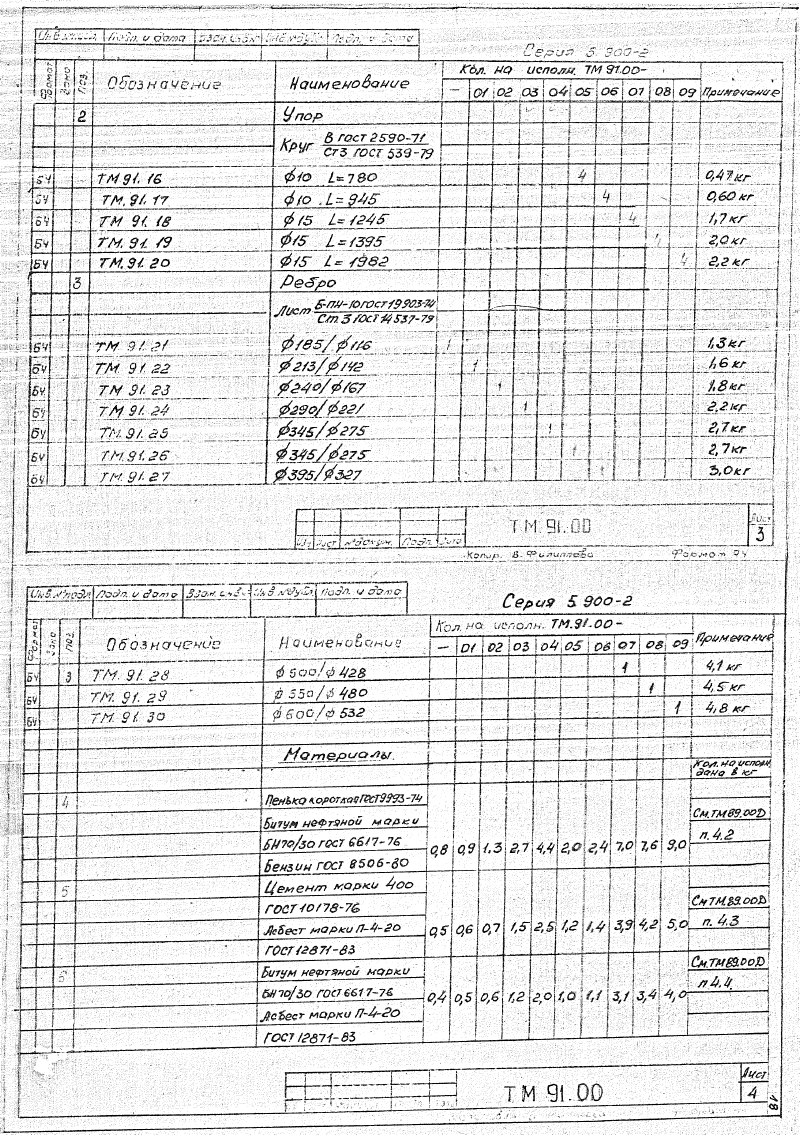 Подп. и дата
Серия 5.900-2
Формат Зона Поз. Обозначение Наименование Кол. на исполн. ТМ 91.00- Примечание
— 01 02 03 04 05 06 07 08 09
2 Упор
Круг В ГОСТ 2590-71
Ст3 ГОСТ 539-79
БЧ ТМ 91.16 ϕ10 L=780 4 0,47 кг
БЧ ТМ. 91.17 ϕ10 L=945 4 0,60 кг
БЧ ТМ 91.18 ϕ15 L=1245 4 1,7 кг
БЧ ТМ. 91.19 ϕ15 L=1395 4 2,0 кг
БЧ ТМ. 91.20 ϕ15 L=1982 4 2,2 кг
3 Ребро
Лист Б-ПН-10 ГОСТ 19903-74
Ст 3 ГОСТ 14537-79
БЧ ТМ. 91.21 ϕ185/ϕ116 1 1,3 кг
БЧ ТМ. 91.22 ϕ213/ϕ142 1 1,6 кг
БЧ ТМ. 91.23 ϕ240/ϕ167 1 1,8 кг
БЧ ТМ. 91.24 ϕ290/ϕ221 1 2,2 кг
БЧ ТМ. 91.25 ϕ345/ϕ275 1 2,7 кг
БЧ ТМ. 91.26 ϕ345/ϕ275 1 2,7 кг
БЧ ТМ. 91.27 ϕ395/ϕ327 1 3,0 кг
ТМ. 91.00 Лист
3
Лист № докум. Подп. Дата
Копир. В. Филиппова Формат А4
Инв. № подл. Подп. и дата Взам. инв. № Инв. № дубл. Подп. и дата
Серия 5.900-2
Формат Зона Поз. Обозначение Наименование Кол. на исполн. ТМ.91.00- Примечание
— 01 02 03 04 05 06 07 08 09
БЧ 3 ТМ. 91.28 ϕ500/ϕ428 1 4,1 кг
БЧ ТМ. 91.29 ϕ550/ϕ480 1 4,5 кг
БЧ ТМ. 91.30 ϕ600/ϕ532 1 4,8 кг
Материалы.
Кол. на исполн.
дана в кг
4 Пенька короткая ГОСТ 9993-74
Битум нефтяной марки См. ТМ 89.00Д
БН 70/30 ГОСТ 6617-76 0,8 0,9 1,3 2,7 4,4 2,0 2,4 7,0 7,6 9,0 п. 4.2
Бензин ГОСТ 8506-80
5 Цемент марки 400
ГОСТ 10178-76 См. ТМ 89.00Д
Асбест марки П-4-20 0,5 0,6 0,7 1,5 2,5 1,2 1,4 3,9 4,2 5,0 п. 4.3
ГОСТ 12871-83
6 Битум нефтяной марки См. ТМ 89.00Д
БН 70/30 ГОСТ 6617-76 0,4 0,5 0,6 1,2 2,0 1,0 1,1 3,1 3,4 4,0 п 4.4
Асбест марки П-4-20
ГОСТ 12871-83
ТМ 91.00 Лист
4
18